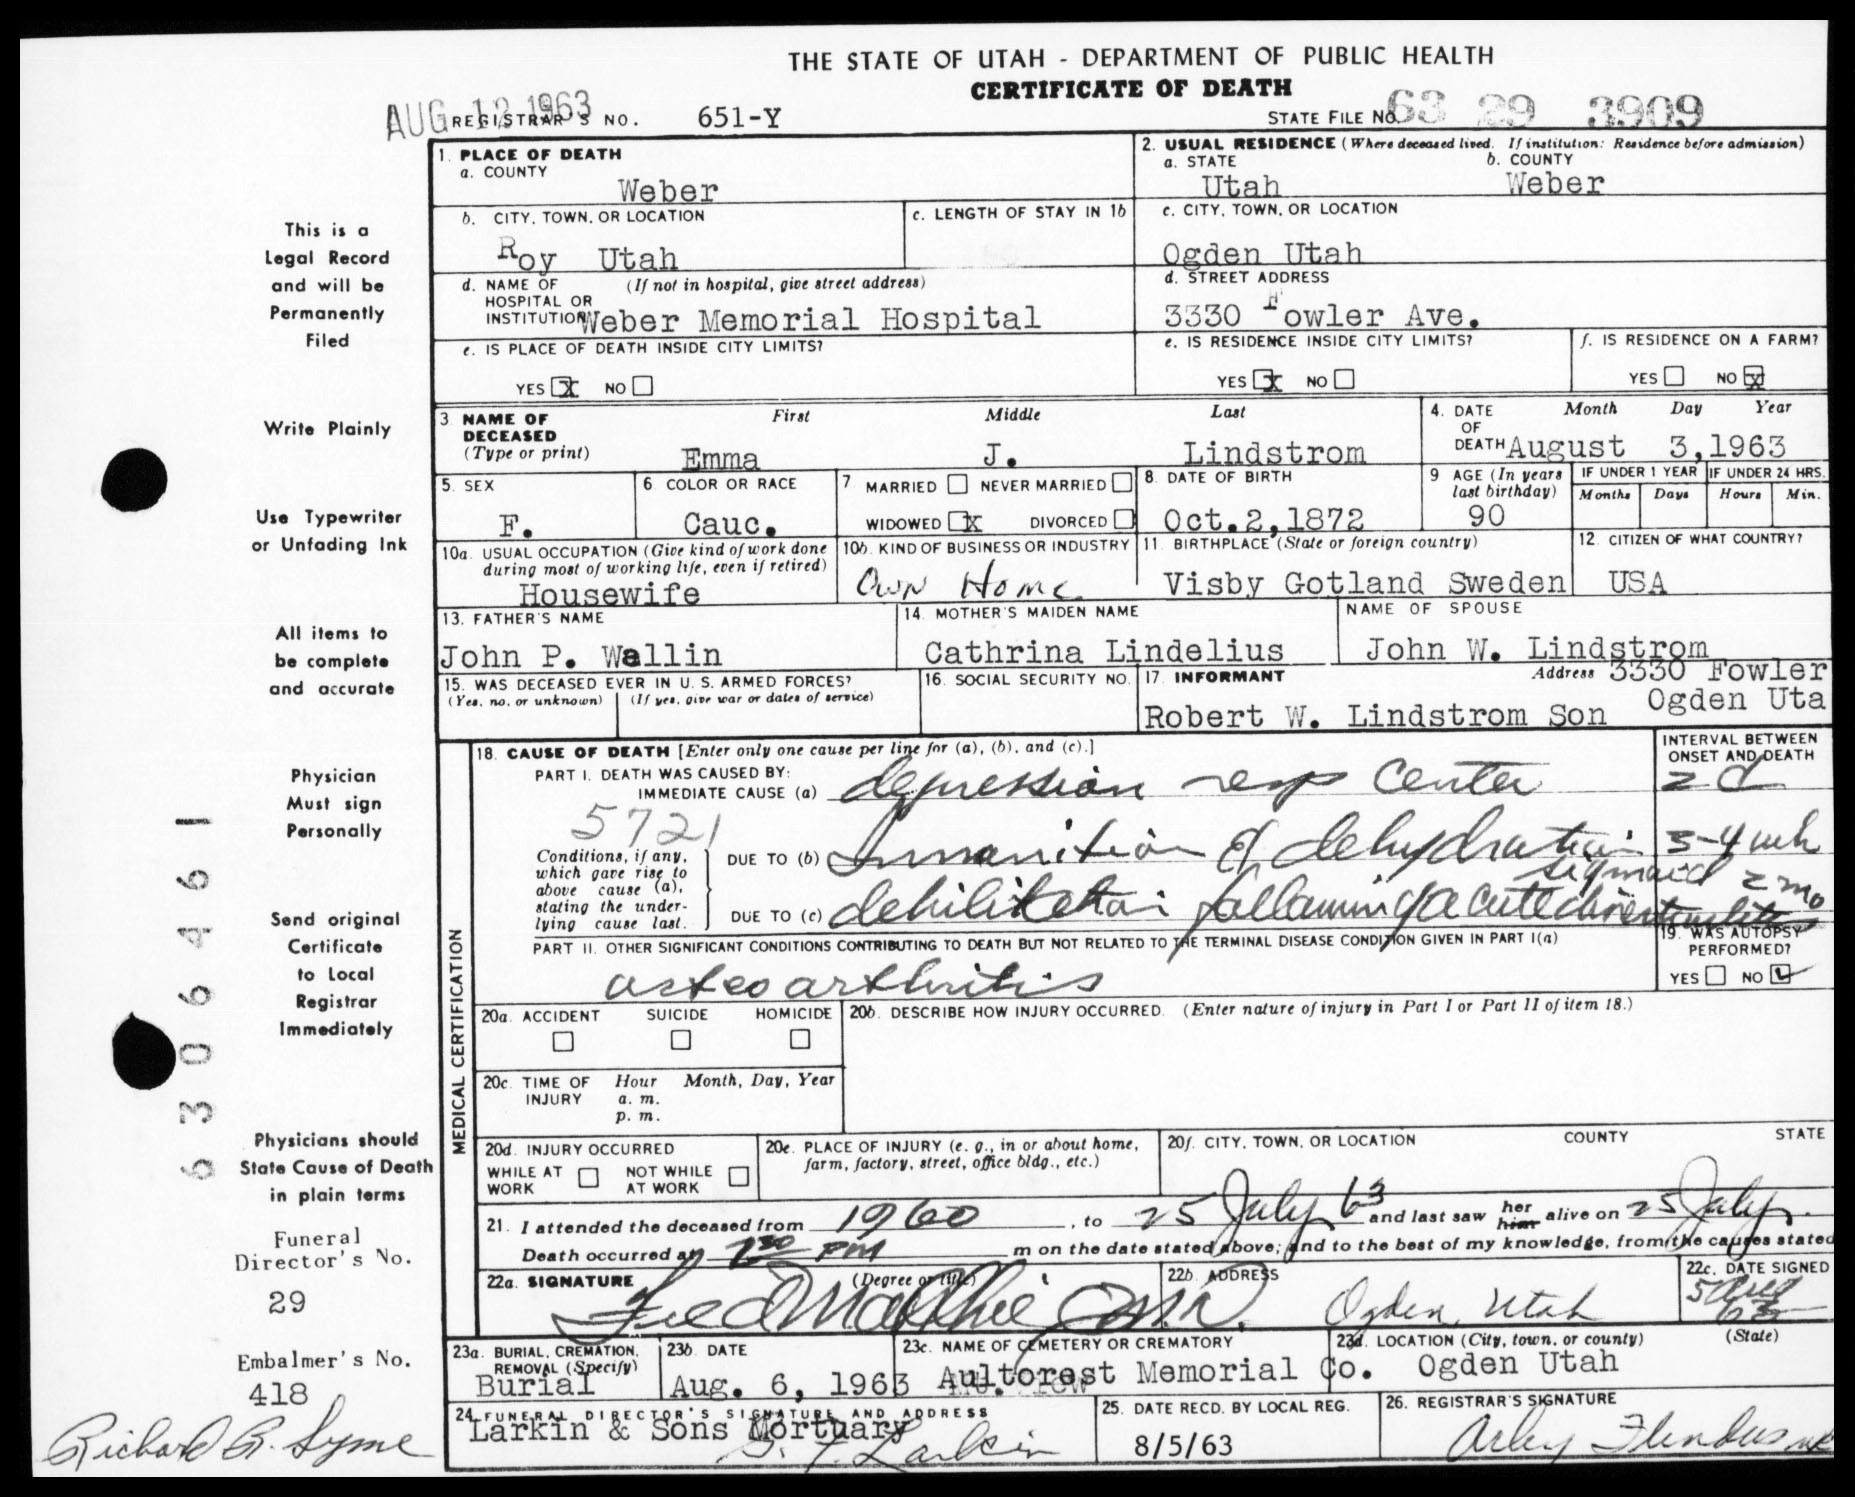 THE STATE OF UTAH - DEPARTMENT OF PUBLIC HEALTH
CERTIFICATE OF DEATH
AUG 12 1963
REGISTRAR'S NO. 651-Y
STATE FILE NO. 63 29 3909
1. PLACE OF DEATH
a. COUNTY
Weber
2. USUAL RESIDENCE (Where deceased lived. If institution: Residence before admission)
a. STATE b. COUNTY
Utah Weber
b. CITY, TOWN, OR LOCATION
Roy Utah
c. LENGTH OF STAY IN 1b
c. CITY, TOWN, OR LOCATION
Ogden Utah
d. NAME OF (If not in hospital, give street address)
HOSPITAL OR
INSTITUTION Weber Memorial Hospital
d. STREET ADDRESS
3330 Fowler Ave.
e. IS PLACE OF DEATH INSIDE CITY LIMITS?
YES X NO
e. IS RESIDENCE INSIDE CITY LIMITS?
YES X NO
f. IS RESIDENCE ON A FARM?
YES NO X
3 NAME OF DECEASED
(Type or print)
First Middle Last
Emma J. Lindstrom
4. DATE OF DEATH
Month Day Year
August 3,1963
5. SEX
F.
6 COLOR OR RACE
Cauc.
7 MARRIED NEVER MARRIED
WIDOWED X DIVORCED
8. DATE OF BIRTH
Oct.2,1872
9 AGE (In years
last birthday)
90
IF UNDER 1 YEAR
Months Days
IF UNDER 24 HRS.
Hours Min.
10a. USUAL OCCUPATION (Give kind of work done
during most of working life, even if retired)
Housewife
10b. KIND OF BUSINESS OR INDUSTRY
Own Home
11. BIRTHPLACE (State or foreign country)
Visby Gotland Sweden
12. CITIZEN OF WHAT COUNTRY?
USA
13. FATHER'S NAME
John P. Wallin
14. MOTHER'S MAIDEN NAME
Cathrina Lindelius
NAME OF SPOUSE
John W. Lindstrom
15. WAS DECEASED EVER IN U. S. ARMED FORCES?
(Yes, no, or unknown) (If yes, give war or dates of service)
16. SOCIAL SECURITY NO.
17. INFORMANT
Robert W. Lindstrom Son
Address 3330 Fowler
Ogden Uta
18. CAUSE OF DEATH [Enter only one cause per line for (a), (b), and (c).]
INTERVAL BETWEEN
ONSET AND DEATH
PART I. DEATH WAS CAUSED BY:
IMMEDIATE CAUSE (a) depression resp center 2 d
5721
Conditions, if any,
which gave rise to
above cause (a),
stating the under-
lying cause last.
DUE TO (b) Inmanition & dehydration 3-4 wk
DUE TO (c) debilitation following acute sigmoid diverticulitis 2 mo
PART II. OTHER SIGNIFICANT CONDITIONS CONTRIBUTING TO DEATH BUT NOT RELATED TO THE TERMINAL DISEASE CONDITION GIVEN IN PART I(a)
osteoarthritis
19. WAS AUTOPSY
PERFORMED?
YES NO
MEDICAL CERTIFICATION
20a. ACCIDENT SUICIDE HOMICIDE
20b. DESCRIBE HOW INJURY OCCURRED. (Enter nature of injury in Part I or Part II of item 18.)
20c. TIME OF INJURY
Hour Month, Day, Year
a. m.
p. m.
20d. INJURY OCCURRED
WHILE AT WORK NOT WHILE AT WORK
20e. PLACE OF INJURY (e. g., in or about home,
farm, factory, street, office bldg., etc.)
20f. CITY, TOWN, OR LOCATION COUNTY STATE
21. I attended the deceased from 1960, to 25 July 63 and last saw her him alive on 25 July.
Death occurred at 230 PM m on the date stated above; and to the best of my knowledge, from the causes stated
22a. SIGNATURE (Degree or title)
22b. ADDRESS
Ogden, Utah
22c. DATE SIGNED
5 Aug 63
23a. BURIAL, CREMATION,
REMOVAL (Specify)
Burial
23b. DATE
Aug. 6, 1963
23c. NAME OF CEMETERY OR CREMATORY
Aultorest Memorial Co.
23d. LOCATION (City, town, or county) (State)
Ogden Utah
24. FUNERAL DIRECTOR'S SIGNATURE AND ADDRESS
Larkin & Sons Mortuary
Larkin
25. DATE RECD. BY LOCAL REG.
8/5/63
26. REGISTRAR'S SIGNATURE
This is a
Legal Record
and will be
Permanently
Filed
Write Plainly
Use Typewriter
or Unfading Ink
All items to
be complete
and accurate
Physician
Must sign
Personally
Send original
Certificate
to Local
Registrar
Immediately
Physicians should
State Cause of Death
in plain terms
Funeral
Director's No.
29
Embalmer's No.
418
Richard R. Syme